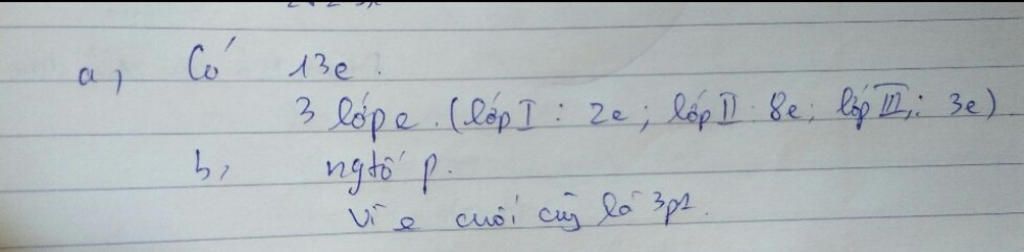 a, Có 13e.
3 lớp e. (lớp I : 2e; lớp II : 8e; lớp III : 3e)
b, ngtố p.
Vì e cuối cùg là 3p1.